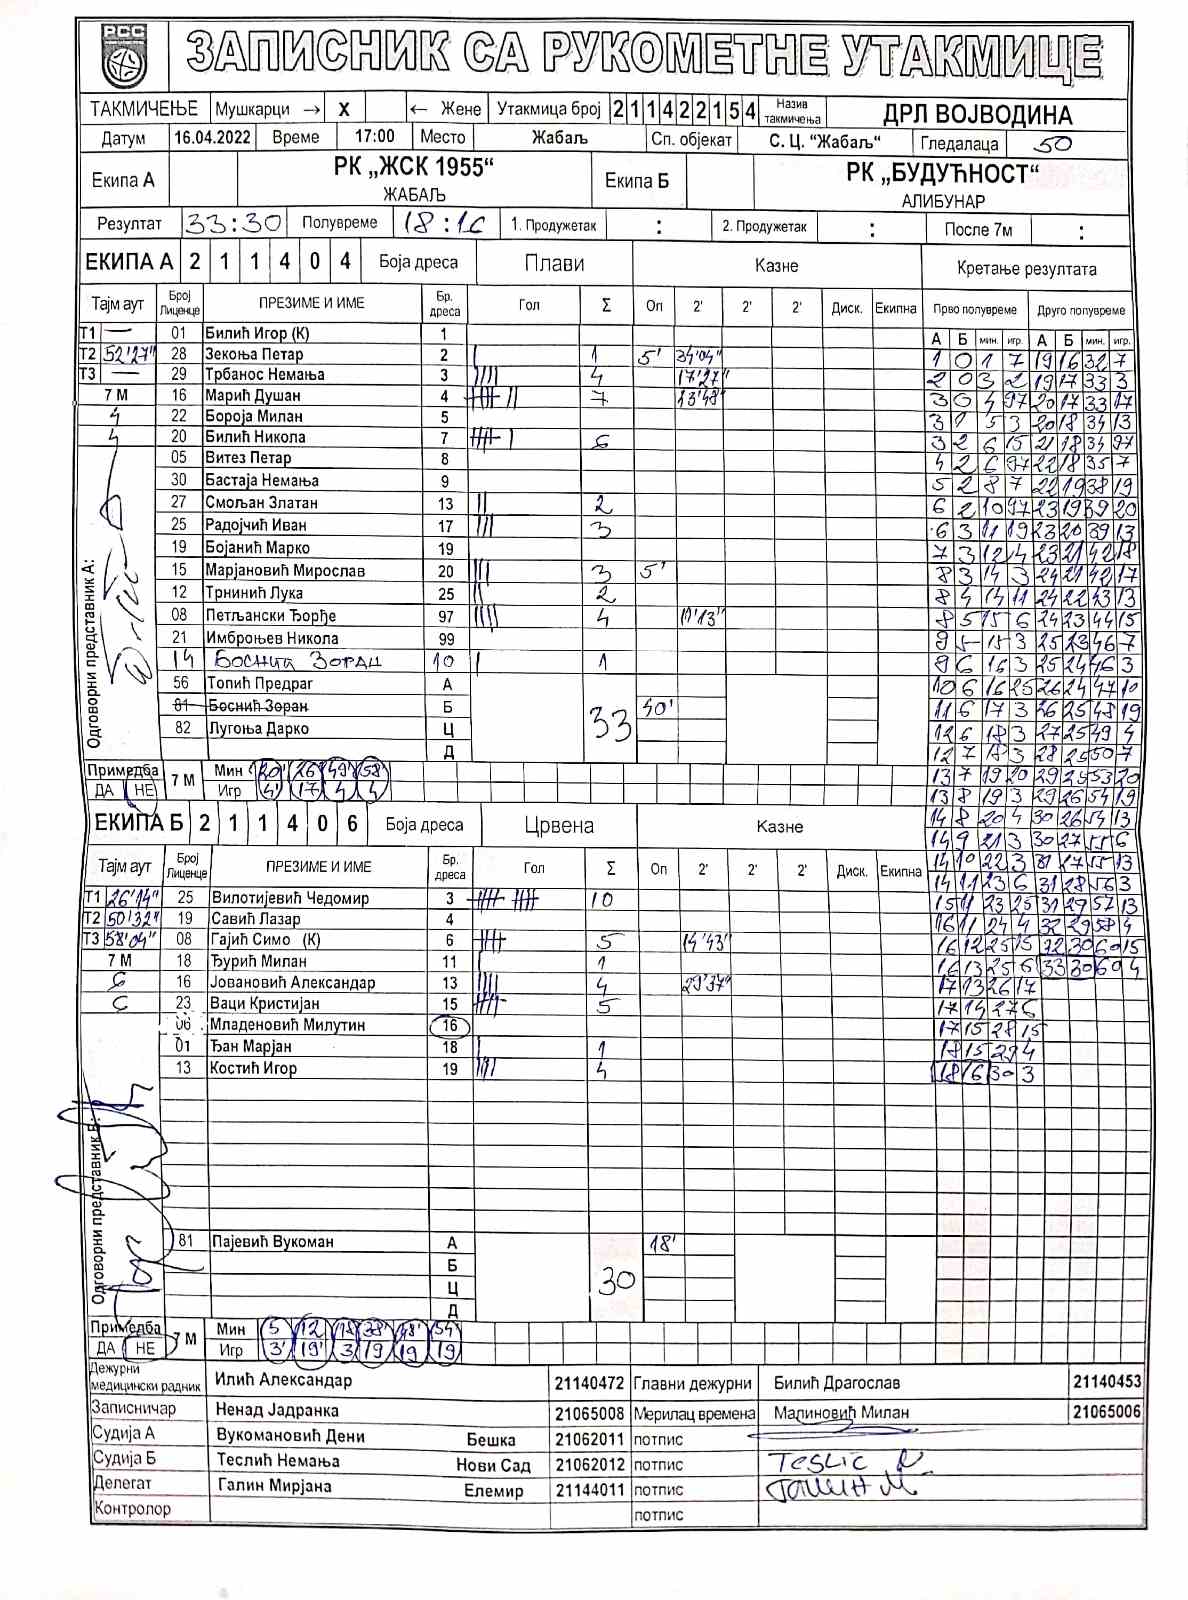 РСС
ЗАПИСНИК СА РУКОМЕТНЕ УТАКМИЦЕ
ТАКМИЧЕЊЕ Мушкарци → X ← Жене Утакмица број 211422154 Назив такмичења ДРЛ ВОЈВОДИНА
Датум 16.04.2022 Време 17:00 Место Жабаљ Сп. објекат С. Ц. "Жабаљ" Гледалаца 50
Екипа А РК „ЖСК 1955“ ЖАБАЉ Екипа Б РК „БУДУЋНОСТ“ АЛИБУНАР
Резултат 33:30 Полувреме 18:16 1. Продужетак : 2. Продужетак : После 7м :
ЕКИПА А 2 1 1 4 0 4 Боја дреса Плави Казне Кретање резултата
Тајм аут Број Лиценце ПРЕЗИМЕ И ИМЕ Бр. дреса Гол Σ Оп 2' 2' 2' Диск. Екипна Прво полувреме Друго полувреме
А Б мин. игр. А Б мин. игр.
Т1 — 01 Билић Игор (К) 1
Т2 52'27" 28 Зекоња Петар 2 1 5' 34'04" 1 0 1 7 19 16 32 7
Т3 — 29 Трбанос Немања 3 4 17'27" 2 0 3 2 19 17 33 3
7 М 16 Марић Душан 4 7 13'48" 3 0 4 97 20 17 33 17
4 22 Бороја Милан 5 3 1 5 3 20 18 34 13
4 20 Билић Никола 7 6 3 2 6 15 21 18 34 97
05 Витез Петар 8 4 2 6 97 22 18 35 7
30 Бастаја Немања 9 5 2 8 7 22 19 38 19
27 Смољан Златан 13 2 6 2 10 97 23 19 39 20
25 Радојчић Иван 17 3 6 3 11 19 23 20 39 13
19 Бојанић Марко 19 7 3 12 4 23 21 42 18
15 Марјановић Мирослав 20 3 5' 8 3 14 3 24 21 42 17
12 Трнинић Лука 25 2 8 4 14 11 24 22 43 13
08 Петљански Ђорђе 97 4 8 5 15 6 24 23 44 15
21 Имброњев Никола 99 9 5 15 3 25 23 46 7
14 БОСНИЋ ЗОРАН 10 1 9 6 16 3 25 24 46 3
56 Топић Предраг А 10 6 16 25 26 24 47 10
81 Боснић Зоран Б 33 40' 11 6 17 3 26 25 48 19
82 Лугоња Дарко Ц 12 6 18 3 27 25 49 4
Д 12 7 18 3 28 25 50 7
Одговорни представник А:
Примедба 7 М Мин 20' 26' 49' 58' 13 7 19 20 29 25 53 20
ДА НЕ Игр 4' 17 4 4 13 8 19 3 29 26 54 19
ЕКИПА Б 2 1 1 4 0 6 Боја дреса Црвена Казне 14 8 20 4 30 26 54 13
14 9 21 3 30 27 55 6
Тајм аут Број Лиценце ПРЕЗИМЕ И ИМЕ Бр. дреса Гол Σ Оп 2' 2' 2' Диск. Екипна 14 10 22 3 31 27 55 13
14 11 23 6 31 28 56 3
Т1 26'14" 25 Вилотијевић Чедомир 3 10 15 11 23 25 31 29 57 13
Т2 50'32" 19 Савић Лазар 4 16 11 24 4 32 29 58 4
Т3 58'04" 08 Гајић Симо (К) 6 5 14'43" 16 12 25 15 32 30 60 15
7 М 18 Ђурић Милан 11 1 16 13 25 6 33 30 60 4
6 16 Јовановић Александар 13 4 29'37" 17 13 26 17
6 23 Ваци Кристијан 15 5 17 14 27 6
06 Младеновић Милутин 16 17 15 28 15
01 Ђан Марјан 18 1 18 15 29 4
13 Костић Игор 19 4 18 16 30 3
Одговорни представник Б:
81 Пајевић Вукоман А 18'
Б
Ц 30
Д
Примедба 7 М Мин 5 12 18 38' 48' 54
ДА НЕ Игр 3' 19' 3 19 19 19
Дежурни медицински радник Илић Александар 21140472 Главни дежурни Билић Драгослав 21140453
Записничар Ненад Јадранка 21065008 Мерилац времена Малиновић Милан 21065006
Судија А Вукомановић Дени Бешка 21062011 потпис
Судија Б Теслић Немања Нови Сад 21062012 потпис Teslic N.
Делегат Галин Мирјана Елемир 21144011 потпис Галин М.
Контролор потпис